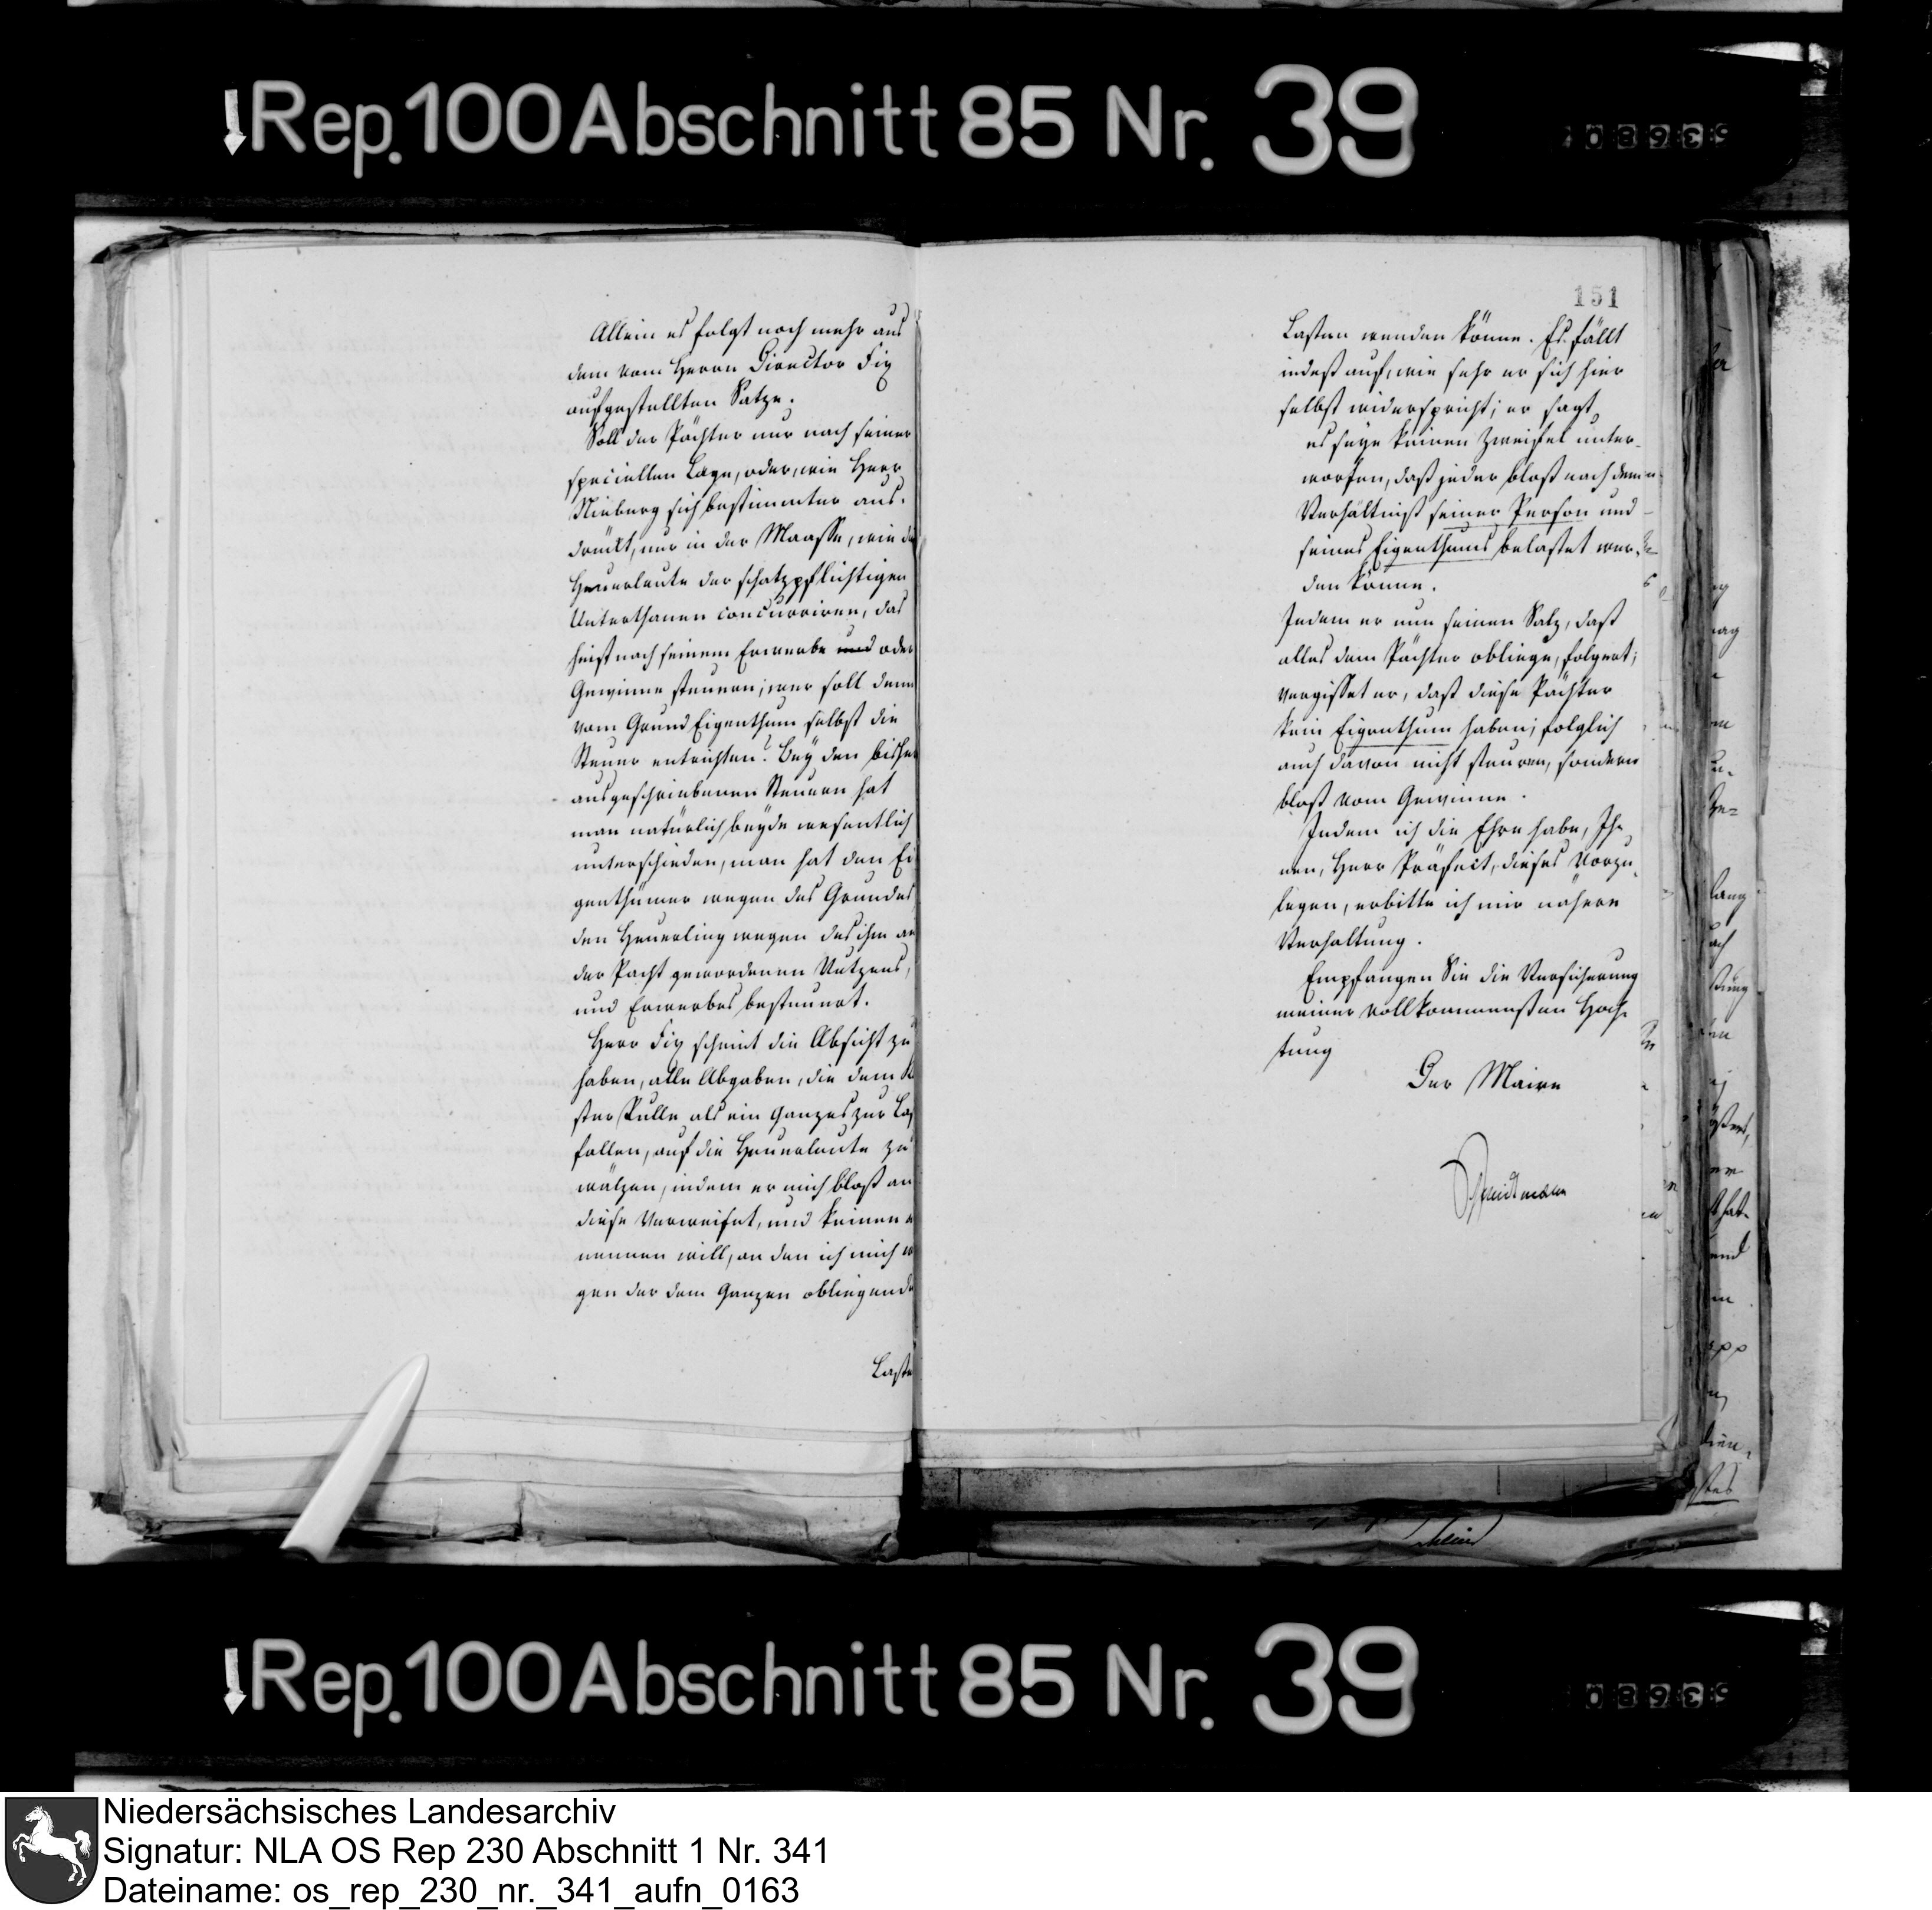 Rep. 100 Abschnitt 85 Nr. 39
Allein es folgt noch mehr aus
dem vom Herrn Director Fix
aufgestellten Satze.
Soll der Pächter nur nach seiner
speciellen Lage, oder, wie Herr
Nieberg sich bestimmter aus-
drückt, nur in der Maasse, wie die
Heuerleute der schatzpflichtigen
Unterthanen concurriren, das
heist nach seinem Erwerbe und oder
Gewinne steuren; wer soll denn
vom Grund Eigenthum selbst die
Steuer entrichten? Bey den bisher
ausgeschriebenen Steuern hat
man natürlich beyde wesentlich
unterschieden, man hat den Ei
genthümer wegen des Grundes
den Heuerling wegen des ihm an
der Pacht gewordenen Nutzens,
und Erwerbes besteuert.
Herr Fix scheint die Absicht zu
haben, alle Abgaben, die dem K
ster Rulle als ein Ganzes zur Las
fallen, auf die Heuerleute zu
wälzen, indem er mich bloß an
diese verweiset, und keinen
nennen will, an den ich mich w
gen der dem Ganzen obliegende
Laste
151
Lasten wenden könne. Es fällt
indeß auf, wie sehr er sich hier
selbst widerspricht; er sagt
es seye keinen Zweifel unter-
worfen, daß jeder bloß nach dem
Verhältniß seiner Person und
seines Eigenthums belastet wer-
den könne.
Indem er nun seinen Satz, daß
alles dem Pächter obliege, folgert;
vergisset er, daß diese Pächter
kein Eigenthum haben; folglich
auch davon nicht steuren, sondern
bloß vom Gewinne.
Indem ich die Ehre habe, Ih-
nen, Herr Präfect, dieses vorzu-
legen, erbitte ich mir nähere
Verhaltung.
Empfangen Sie die Versicherung
meiner vollkommensten Hoch-
tung
Der Maire
Rep. 100 Abschnitt 85 Nr. 39
Niedersächsisches Landesarchiv
Signatur: NLA OS Rep 230 Abschnitt 1 Nr. 341
Dateiname: os_rep_230_nr._341_aufn_0163